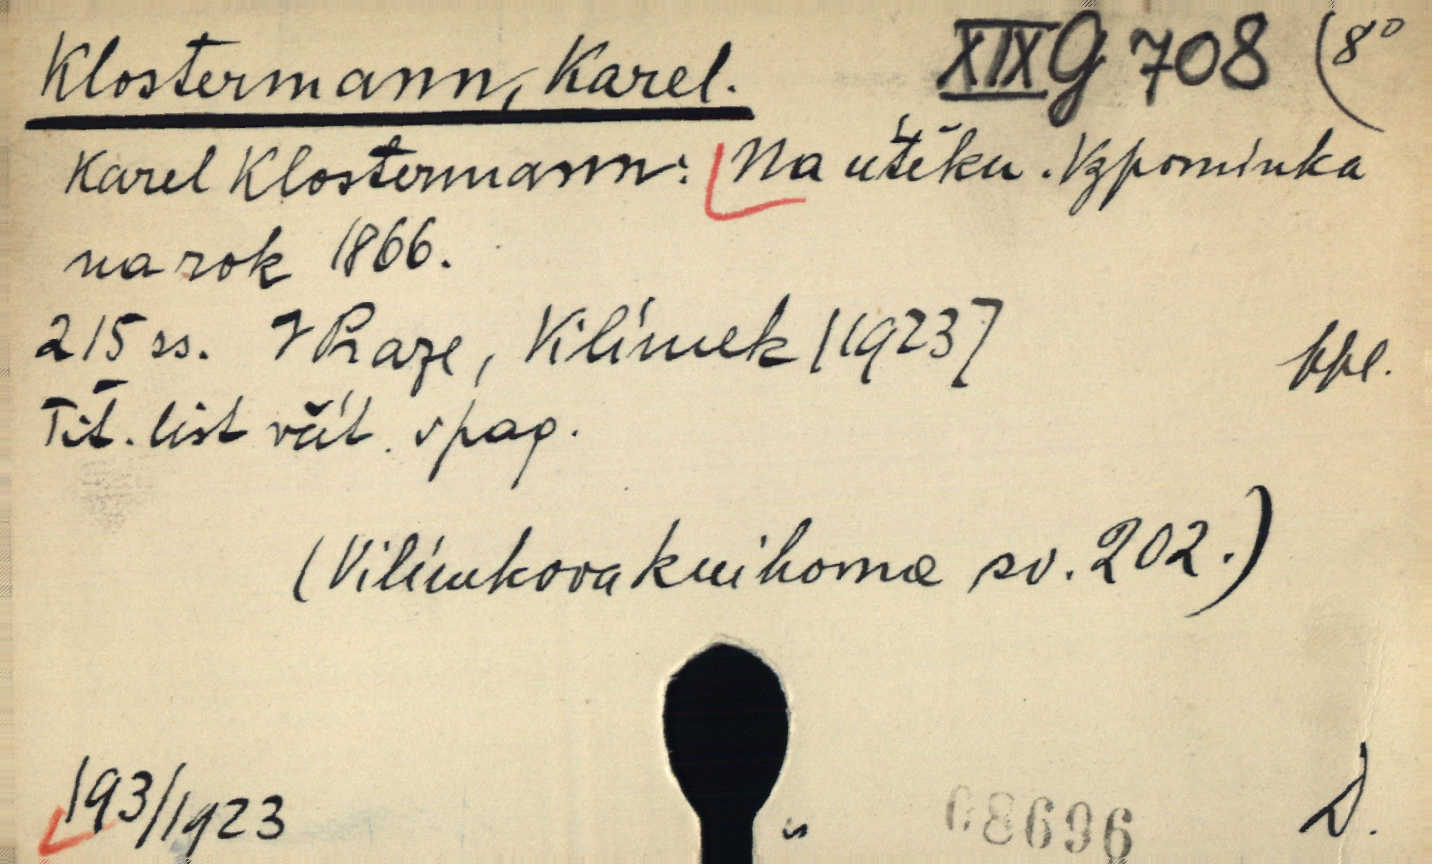 Klostermann, Karel. XIX G 708 (8°
Karel Klostermann: Na útěku. Vzpomínka
na rok 1866.
215 ss. V Praze, Vilímek [1923] ppl.
Tit. list včít. v pag.
(Vilímkova knihovna sv. 202.)
193/1923 08696 D.